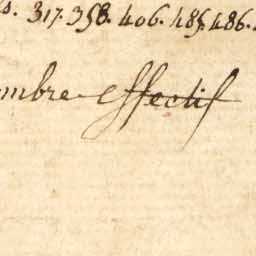 s. 317. 358. 406. 485. 486.
mbre effectif